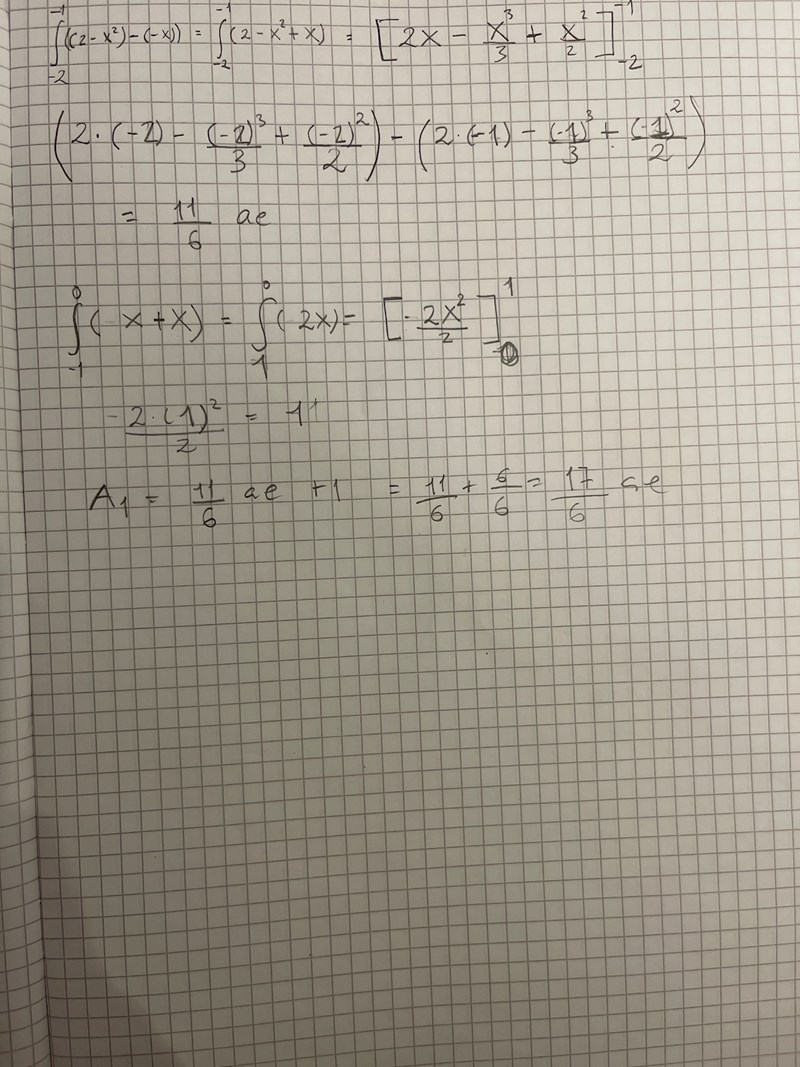 ∫_{-2}^{-1}((2-x²)-(-x)) = ∫_{-2}^{-1}(2-x²+x) = [2x - x³/3 + x²/2]_{-2}^{-1}
(2·(-2) - (-2)³/3 + (-2)²/2) - (2·(-1) - (-1)³/3 + (-1)²/2)
= 11/6 ae
∫_{-1}^{0}(-x+x) = ∫_{1}^{0}(2x) = [-2x²/2]^{1}
-2·(1)²/2 = 1
A₁ = 11/6 ae +1 = 11/6 + 6/6 = 17/6 ae